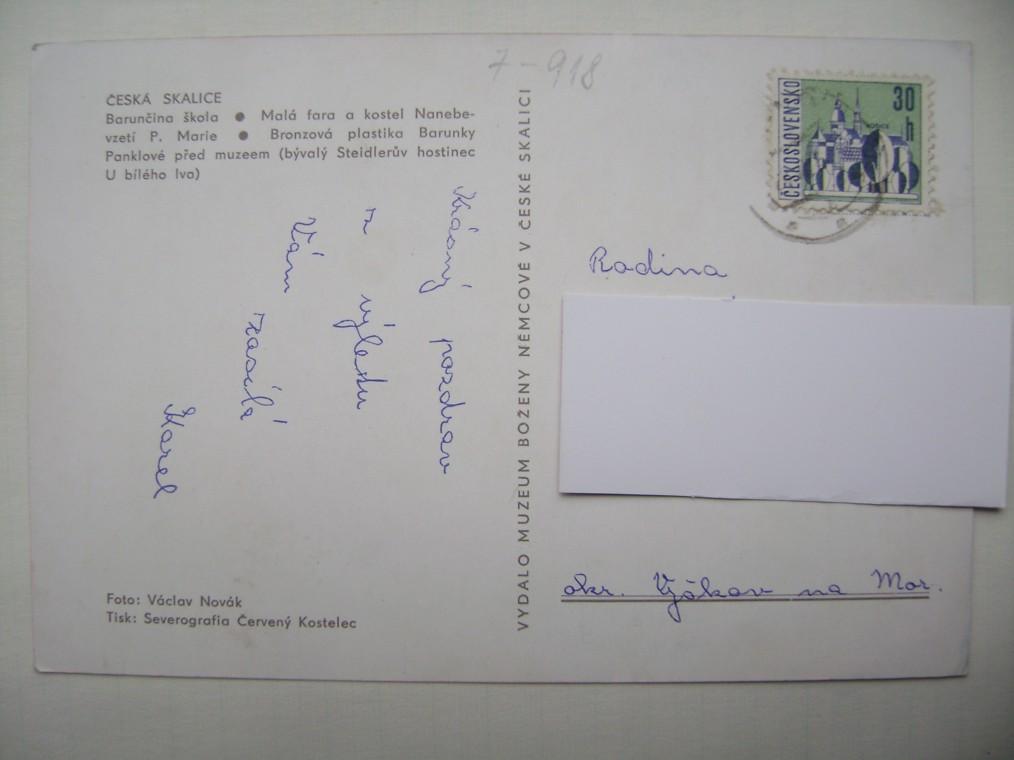 7-918
ČESKÁ SKALICE
Barunčina škola ● Malá fara a kostel Nanebe-
vzetí P. Marie ● Bronzová plastika Barunky
Panklové před muzeem (bývalý Steidlerův hostinec
U bílého lva)
Krásný pozdrav
z výletu
Vám
zasílá
Karel
Foto: Václav Novák
Tisk: Severografia Červený Kostelec
VYDALO MUZEUM BOŽENY NĚMCOVÉ V ČESKÉ SKALICI
ČESKOSLOVENSKO
30
h
Rodina
okr. Vyškov na Mor.